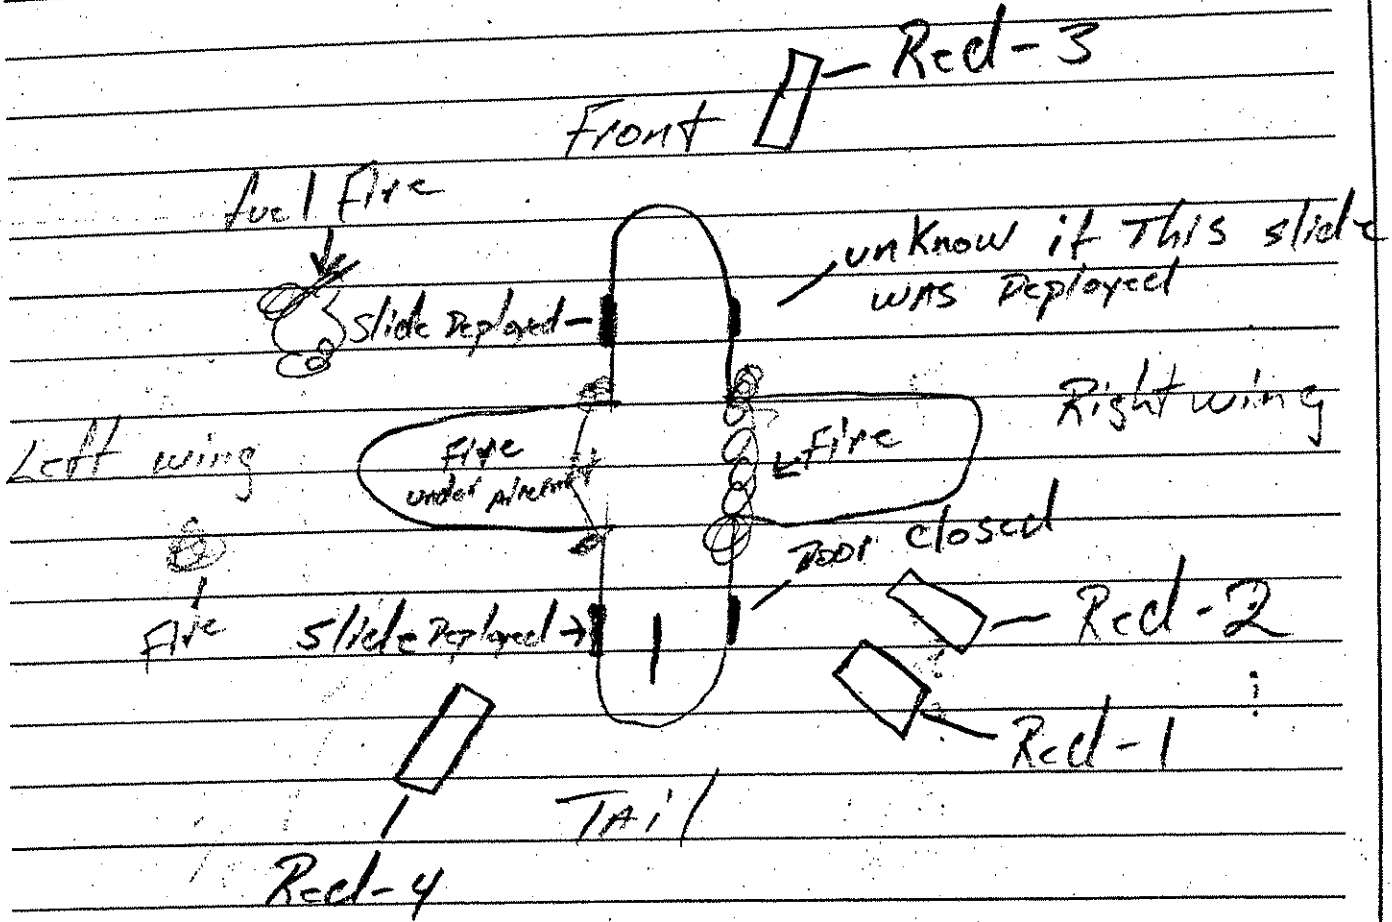 Red-3
Front
fuel Fire
unKnow if This slide
WAS Deployed
Slide Deployed
Right wing
Left wing
Fire
under
Fire
Door closed
Fire
Slide Deployed
Red-2
Red-1
TAil
Red-4